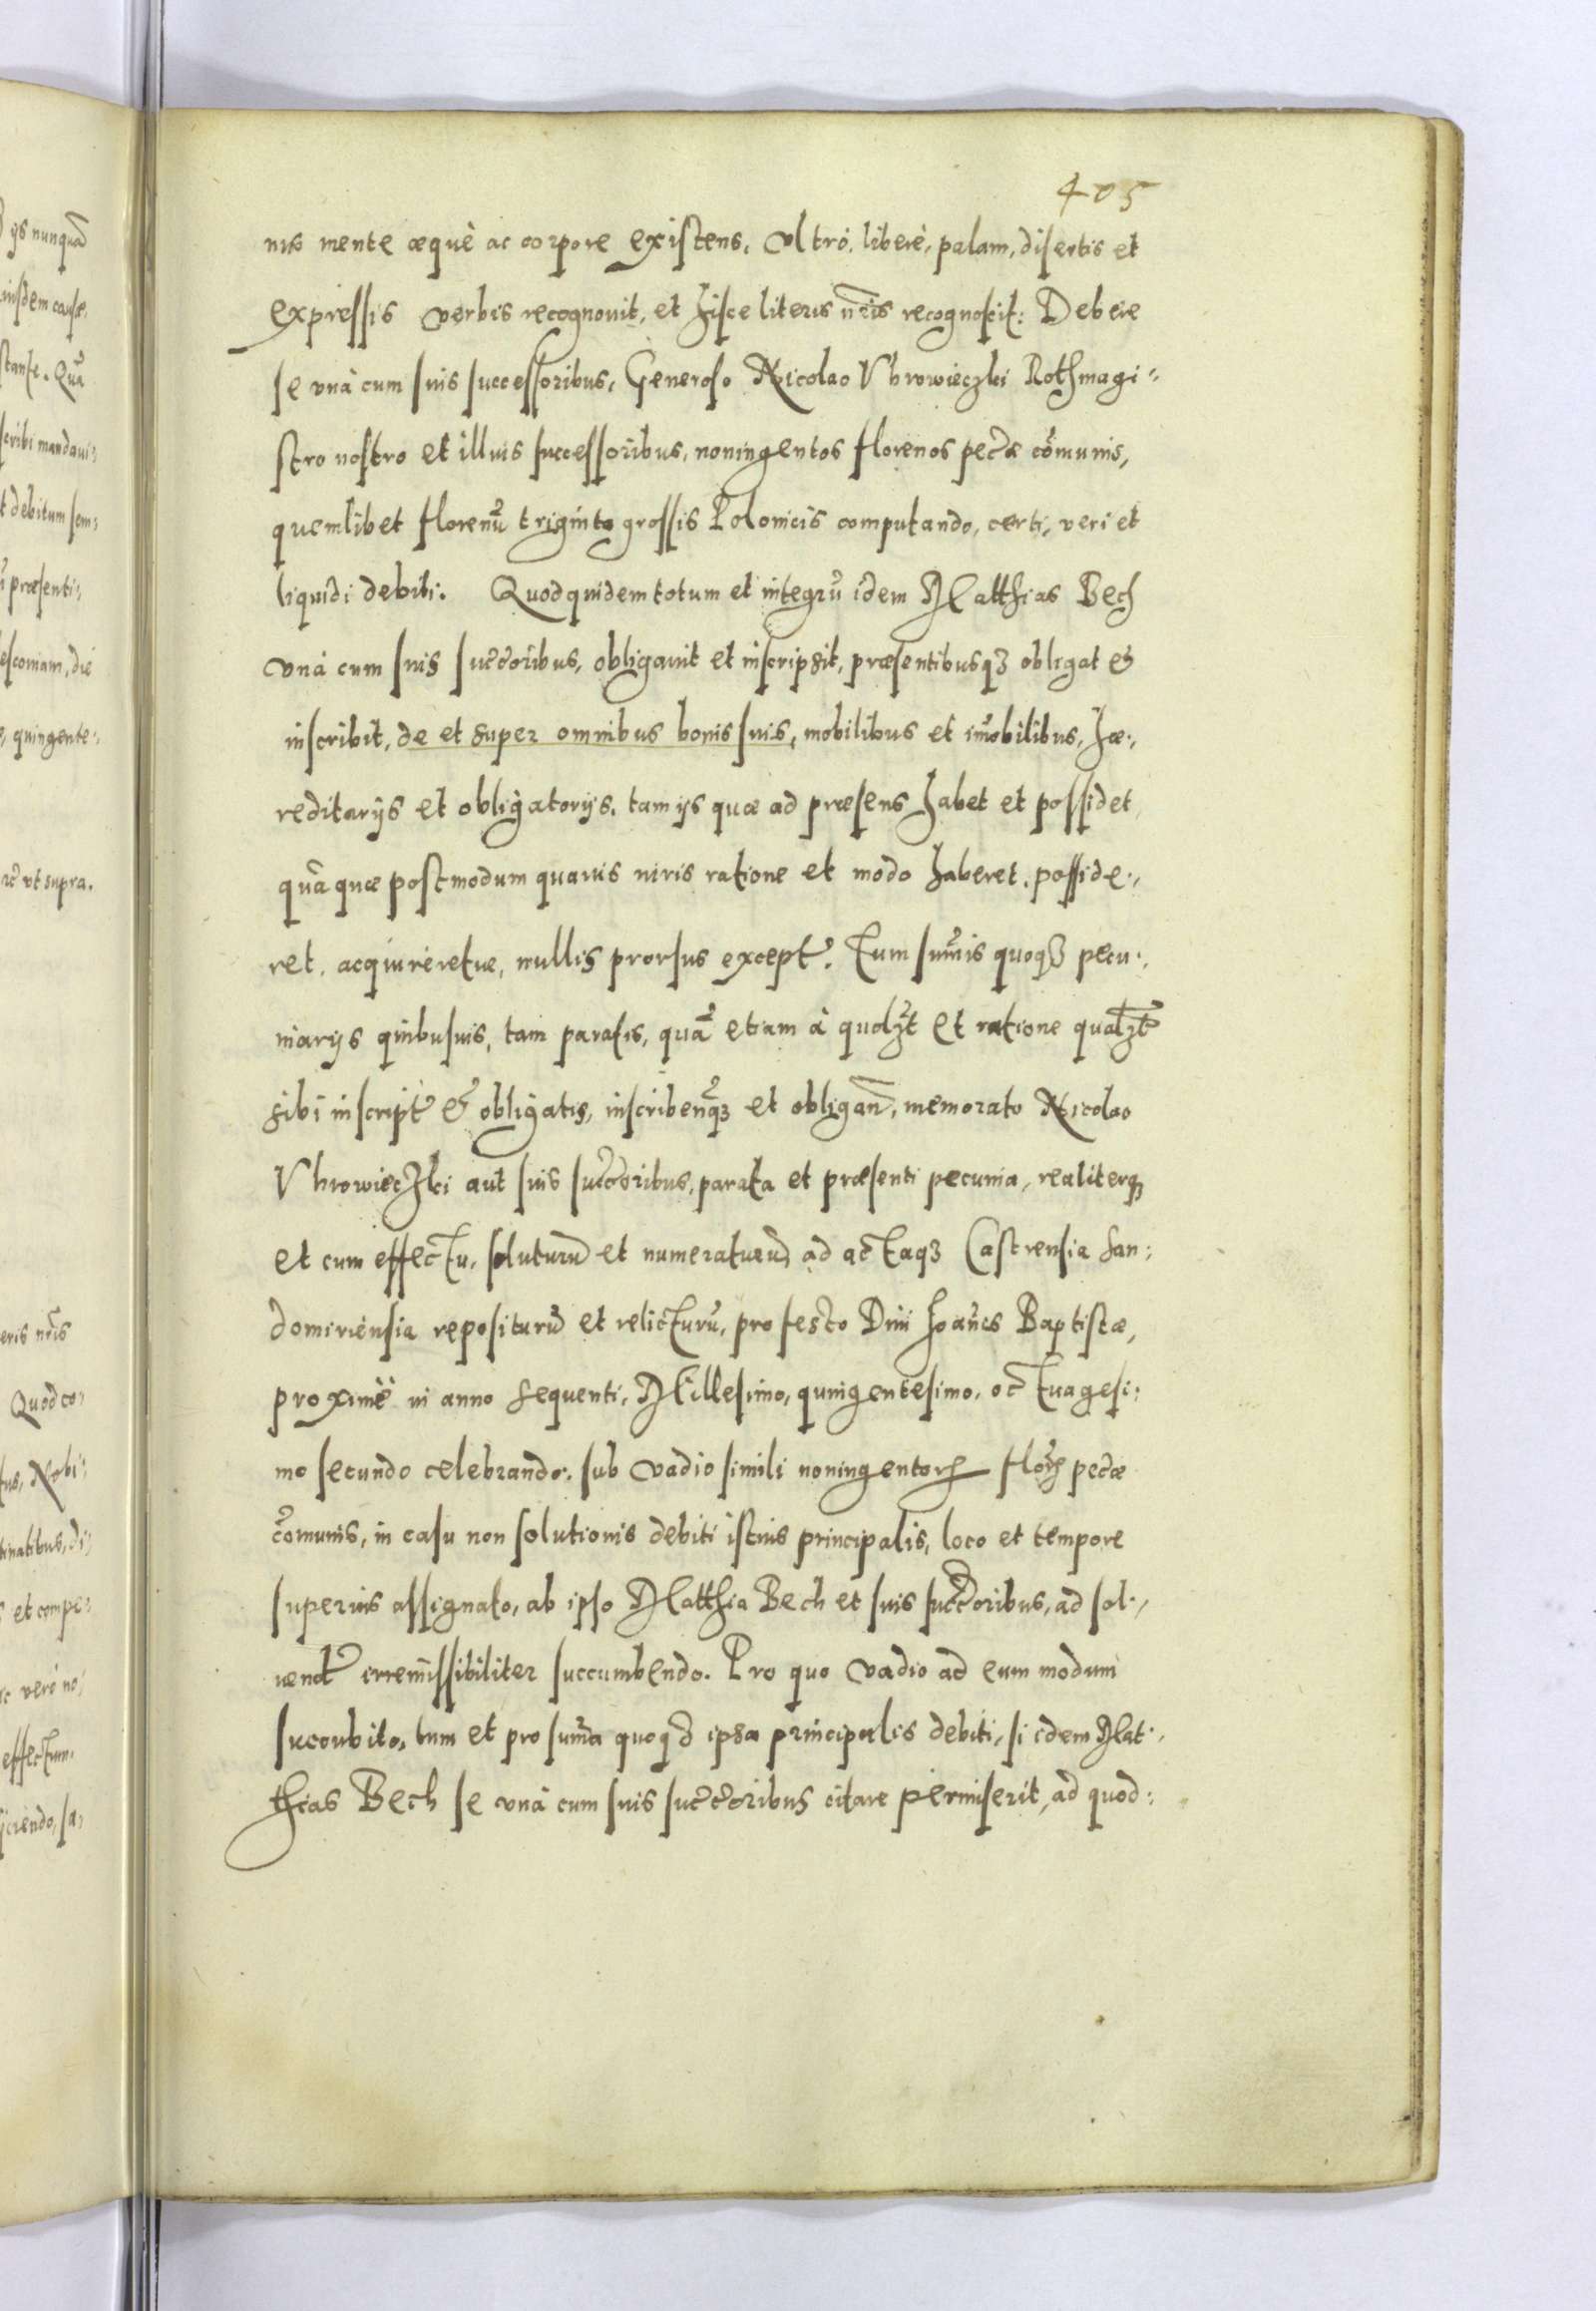 405
nus mente æquè ac corpore existens, Vltró, liberè, palam, disertis et
expressis verbis recognouit, et hisce literis nr̃is recognoscit: Debere
se vnà cum suis successoribus, Generoso Nicolao Vhrowieczki Rothmagi:
stro nostro et illius successoribus, noningentos florenos pecć̃æ com̃unis,
quemlibet florenũ triginta grossis Polonicis computando, certi, veri et
liquidi debiti. Quodquidem totum et integrũ idem Matthias Bech
vnà cum suis succ̃oribus, obligauit et inscripsit, præsentibusqȝ obligat &
inscribit, de et super omnibus bonis suis, mobilibus et im̃obilibus, hæ:,
reditarijs et obligatorijs, tam ijs quæ ad præsens habet et possidet
quã quæ postmodum quauis iuris ratione et modo haberet, posside:,
ret, acquireretue, nullis prorsus except̃. Tum sum̃is quoqȝ pecu:,
niarijs quibusuis, tam paratis, quã etiam à quolȝt et ratione qualȝt
sibi inscript̃ & obligatis, inscribenqȝ et obligañ, memorato Nicolao
Vhrowieczki aut suis succ̃oribus, parata et præsenti pecunia, realiterqȝ
et cum effectu, soluturũ et numeraturũ, ad actaqȝ Castrensia San:
domiriensia repositurũ et relicturũ, pro festo Diui Joañis Baptistæ,
proximè in anno sequenti, Millesimo, quingentesimo, octuagesi:
mo secundo celebrando, sub vadio simili noningentorꝝ florꝝ pecc̃æ
com̃unis, in casu non solutionis debiti istius principalis, loco et tempore
superius assignato, ab ipso Matthia Bech et suis succ̃oribus, ad sol:,
uend̃ irremissibiliter succumbendo. Pro quo vadio ad eum modum
sucoubito, tum et pro sum̃a quoqȝ ipsa principalis debiti, si idem Mat:,
thias Bech se vnà cum suis succ̃oribus citare permiserit, ad quod: